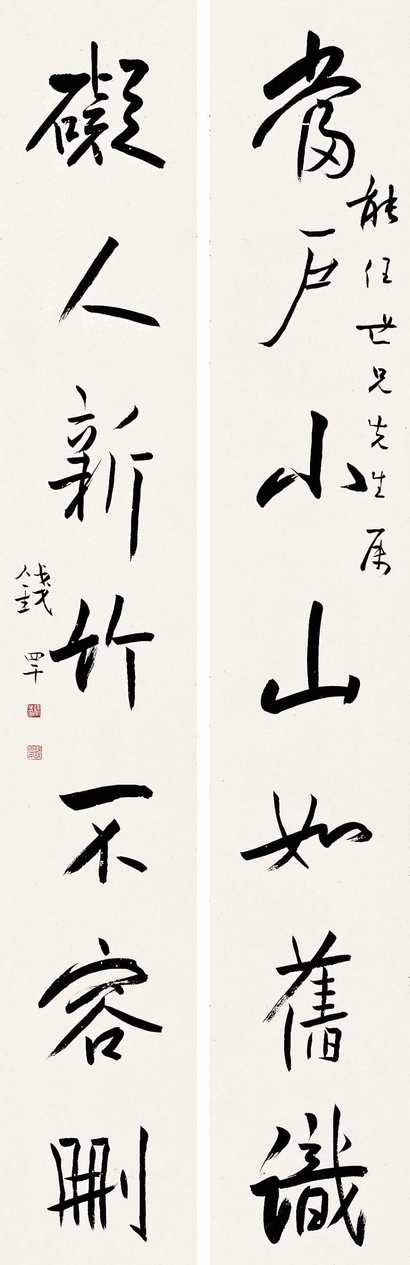 能任世兄先生属
當戶小山如舊識
礙人新竹不容刪
錢